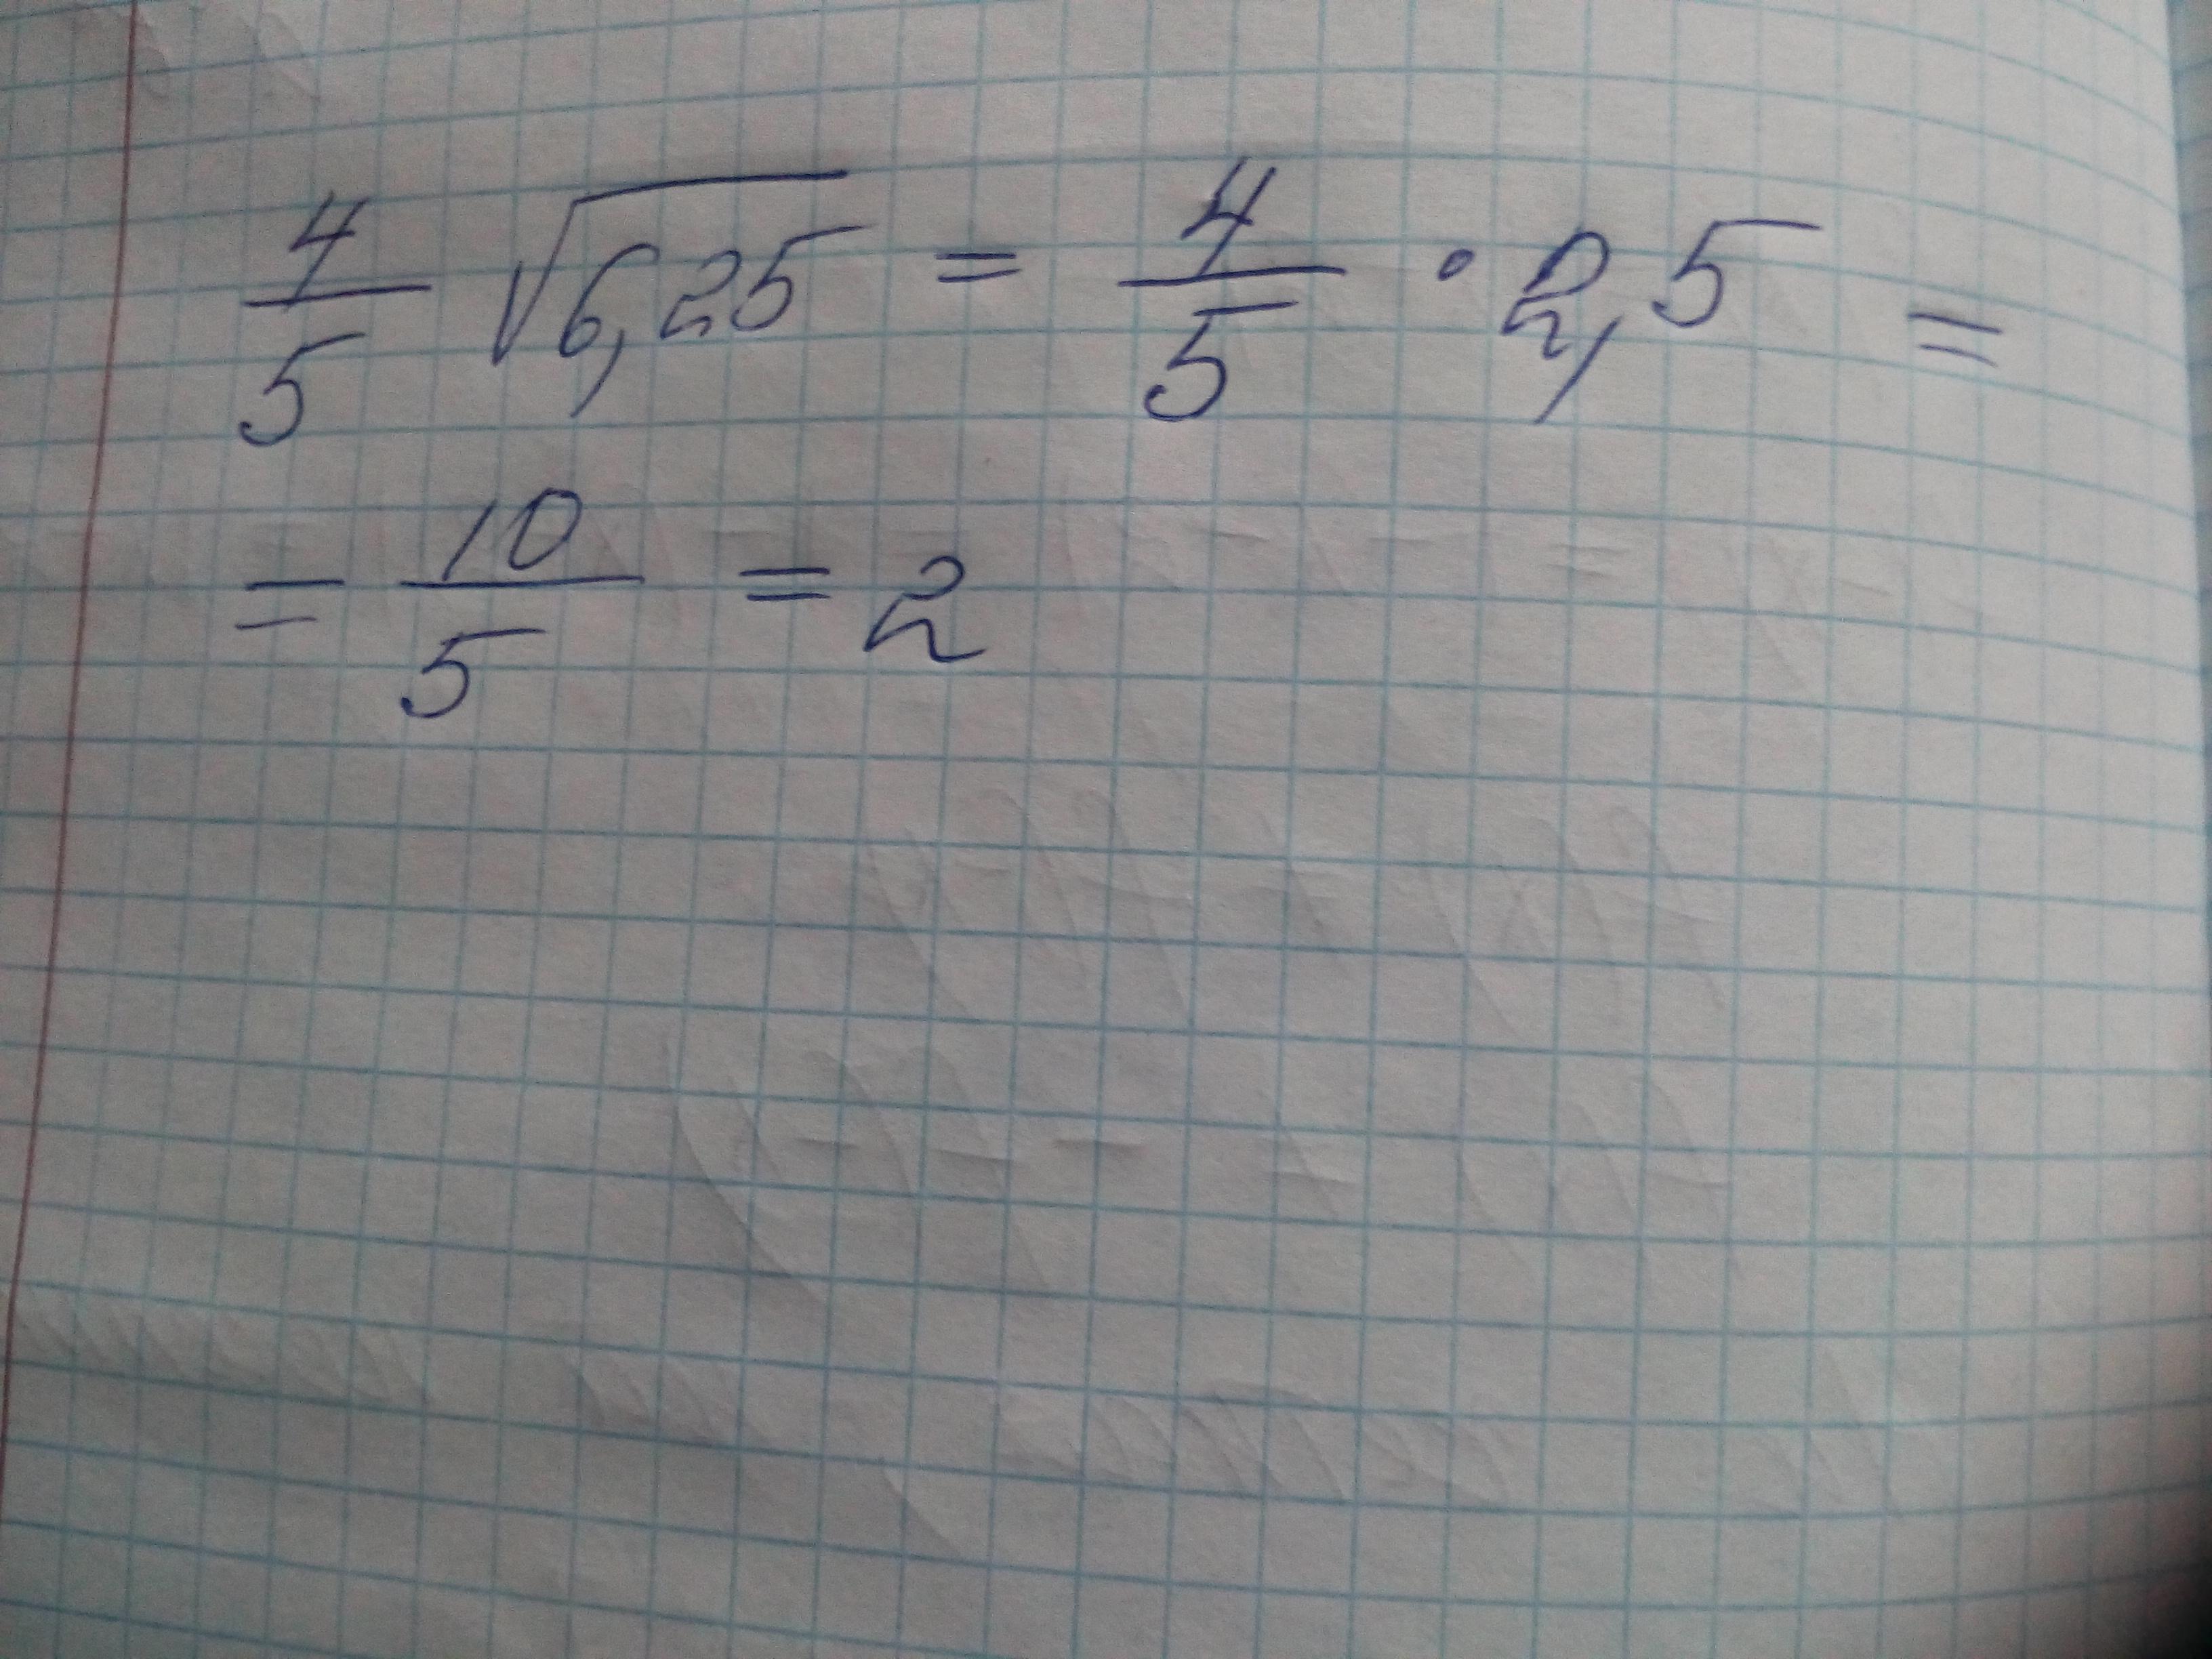 4/5 √6,25 = 4/5 · 2,5 =
= 10/5 = 2